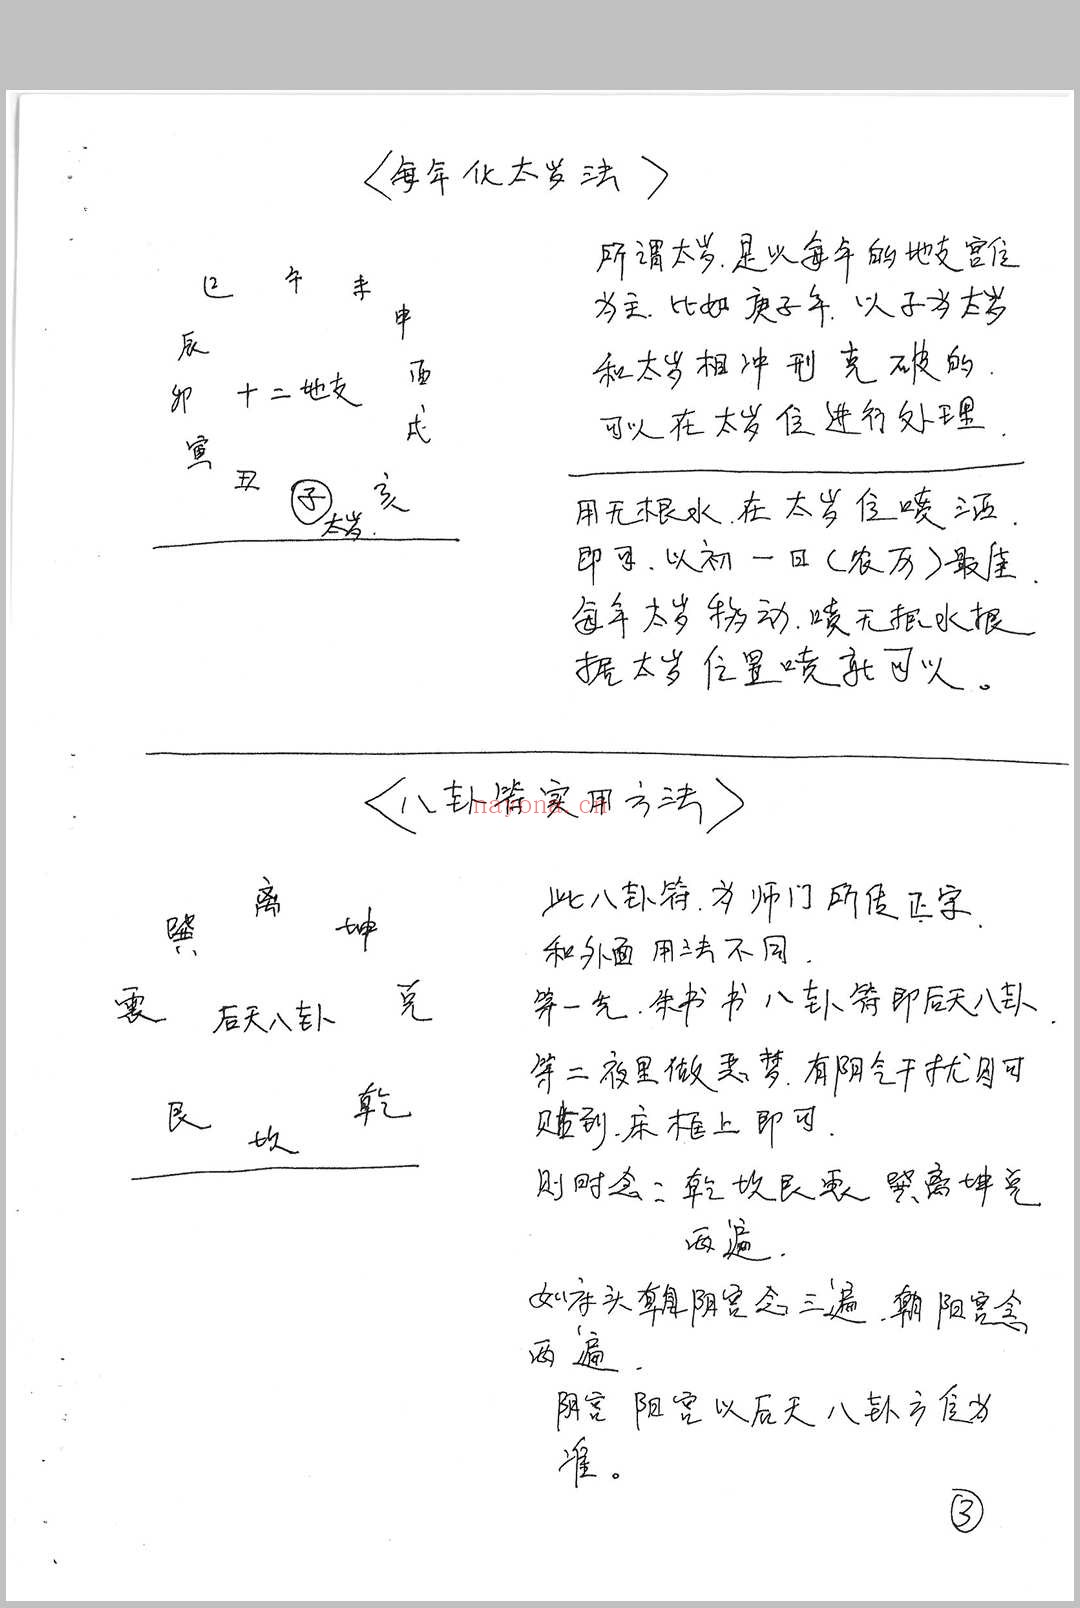 〈每年化太岁法〉
巳 午 未
申
辰
酉
卯 十二地支
戌
寅
丑 子 亥
太岁.
所谓太岁.是以每年的地支宫位
为主.比如庚子年.以子为太岁
和太岁相冲刑克破的.
可以在太岁位进行处理.
用无根水.在太岁位喷洒.
即可.以初一日(农历)最佳.
每年太岁移动.喷无根水根
据太岁位置喷就可以。
〈八卦符实用方法〉
nayona.cn
离
巽 坤
震 后天八卦 兑
艮 乾
坎
此八卦符.为师门所传正宗.
和外面用法不同.
第一先.朱书书八卦符即后天八卦.
第二夜里做恶梦.有阴气干扰则可
贴到.床框上即可.
则时念:乾坎艮震 巽离坤兑
两遍.
如床头朝阴宫念三遍.朝阳宫念
两遍.
阴宫 阳宫以后天八卦方位为
准。
③